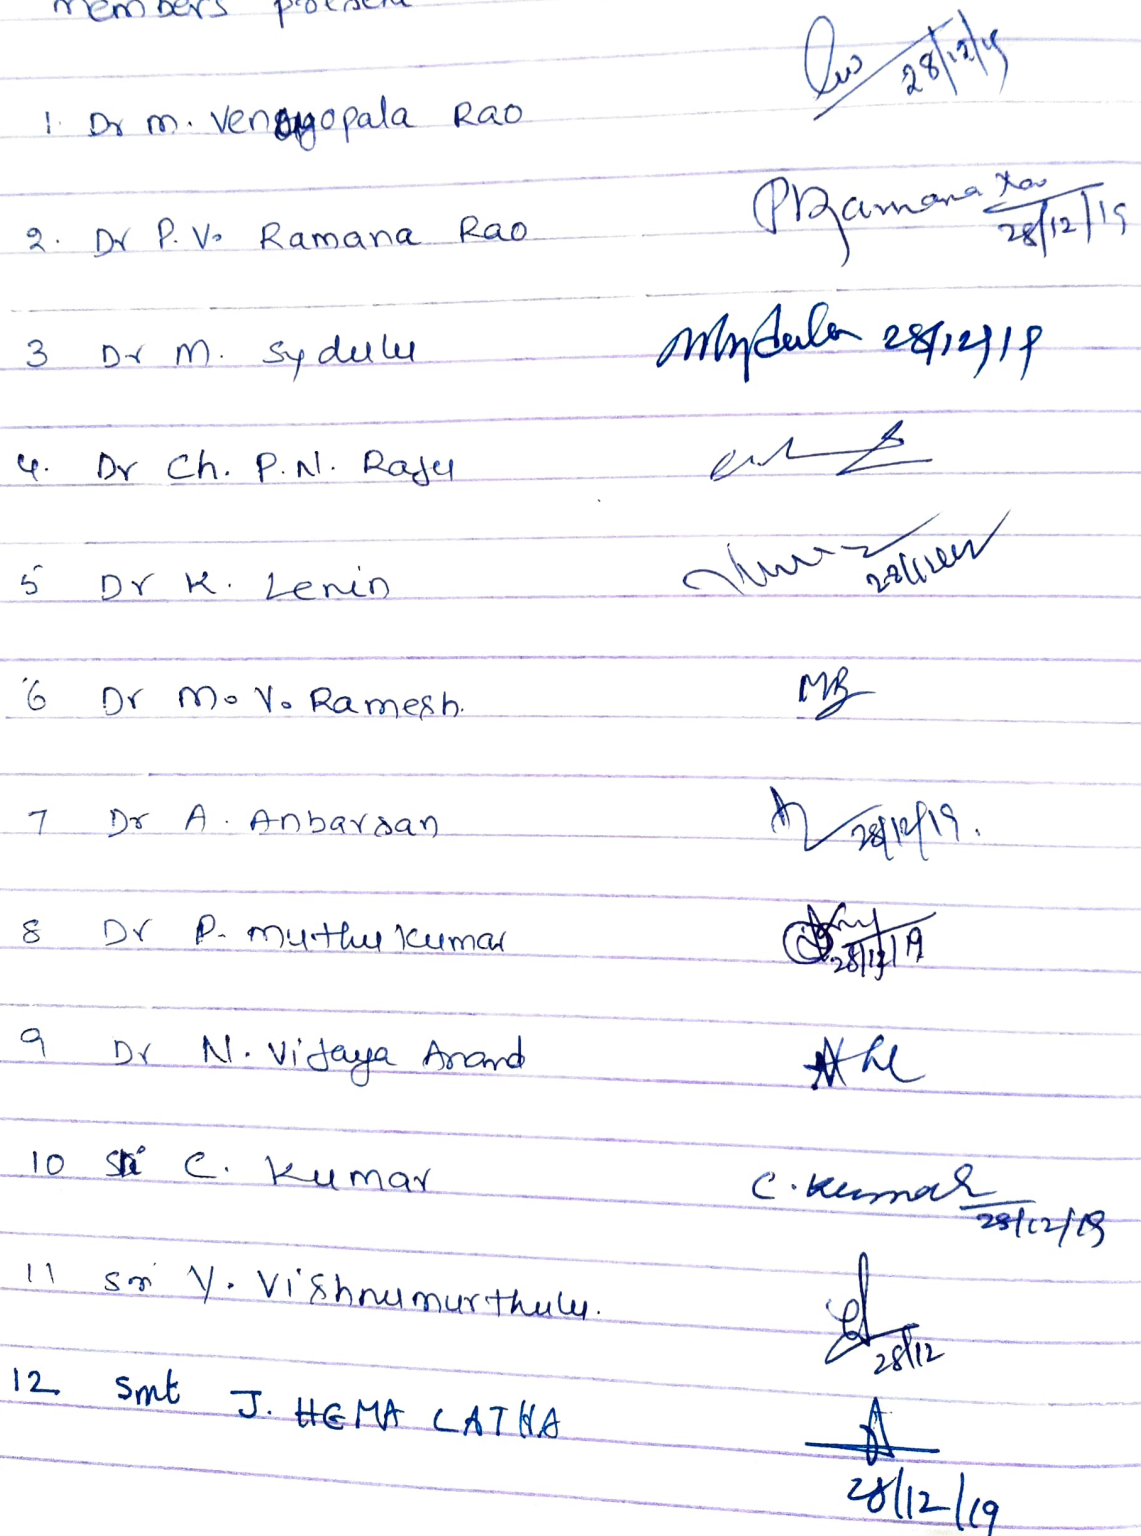 Members present
1. Dr M. Venugopala Rao 28/12/19
2. Dr P. V. Ramana Rao PVRamana Rao 28/12/19
3 Dr M. Sydulu MSydulu 28/12/19
4. Dr Ch. P.N. Raju
5 Dr K. Lenin
6 Dr M. V. Ramesh.
7 Dr A. Anbarsan 28/12/19.
8 Dr P. Muthu Kumar 28/12/19
9 Dr N. Vijaya Anand
10 Sri C. Kumar C. Kumar 28/12/19
11 Sri Y. Vishnumurthulu. 28/12
12 Smt J. HEMA LATHA 28/12/19